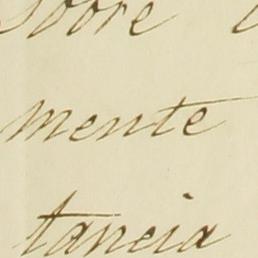 sobre
mente
tancia